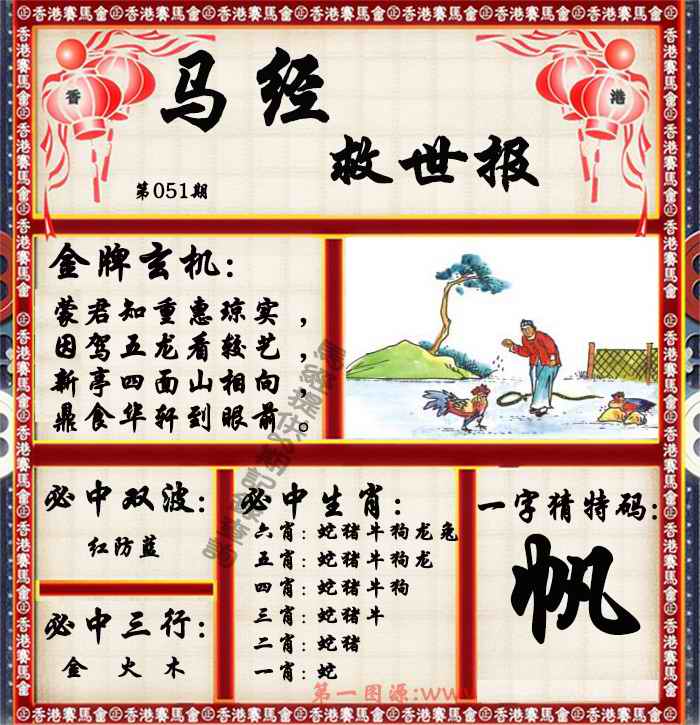 香港賽馬會
香 港
马经
救世报
第051期
金牌玄机:
蒙君知重惠琼实，
因驾五龙看较艺，
新亭四面山相向，
鼎食华轩到眼前。
必中双波:
红防蓝
必中三行:
金 火 木
必中生肖:
六肖: 蛇猪牛狗龙兔
五肖: 蛇猪牛狗龙
四肖: 蛇猪牛狗
三肖: 蛇猪牛
二肖: 蛇猪
一肖: 蛇
一字猜特码:
帆
第一图源:www